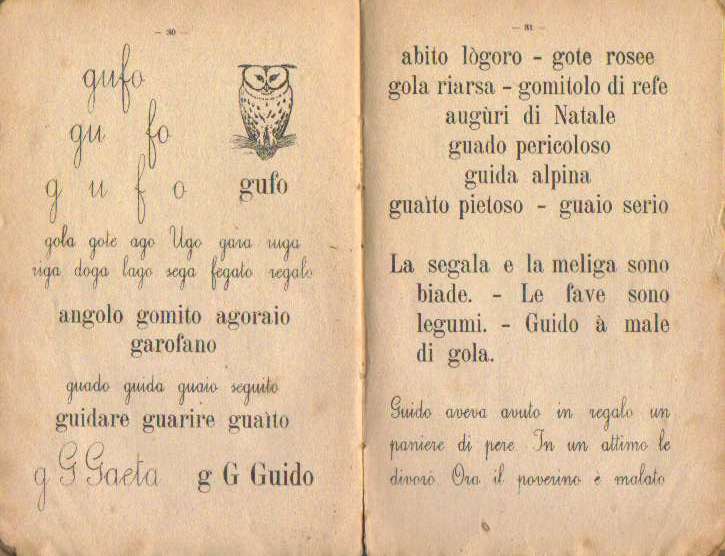 — 30 —
gufo
gu fo
g u f o
gufo
gola gote ago Ugo gara ruga
riga doga lago sega fegato regalo
angolo gomito agoraio
garofano
guado guida guaio seguito
guidare guarire guaìto
g G Gaeta g G Guido
— 31 —
abito lògoro - gote rosee
gola riarsa - gomitolo di refe
augùri di Natale
guado pericoloso
guida alpina
guaìto pietoso - guaio serio
La segala e la meliga sono
biade. - Le fave sono
legumi. - Guido à male
di gola.
Guido aveva avuto in regalo un
paniere di pere. In un attimo le
divorò. Ora il poverino è malato